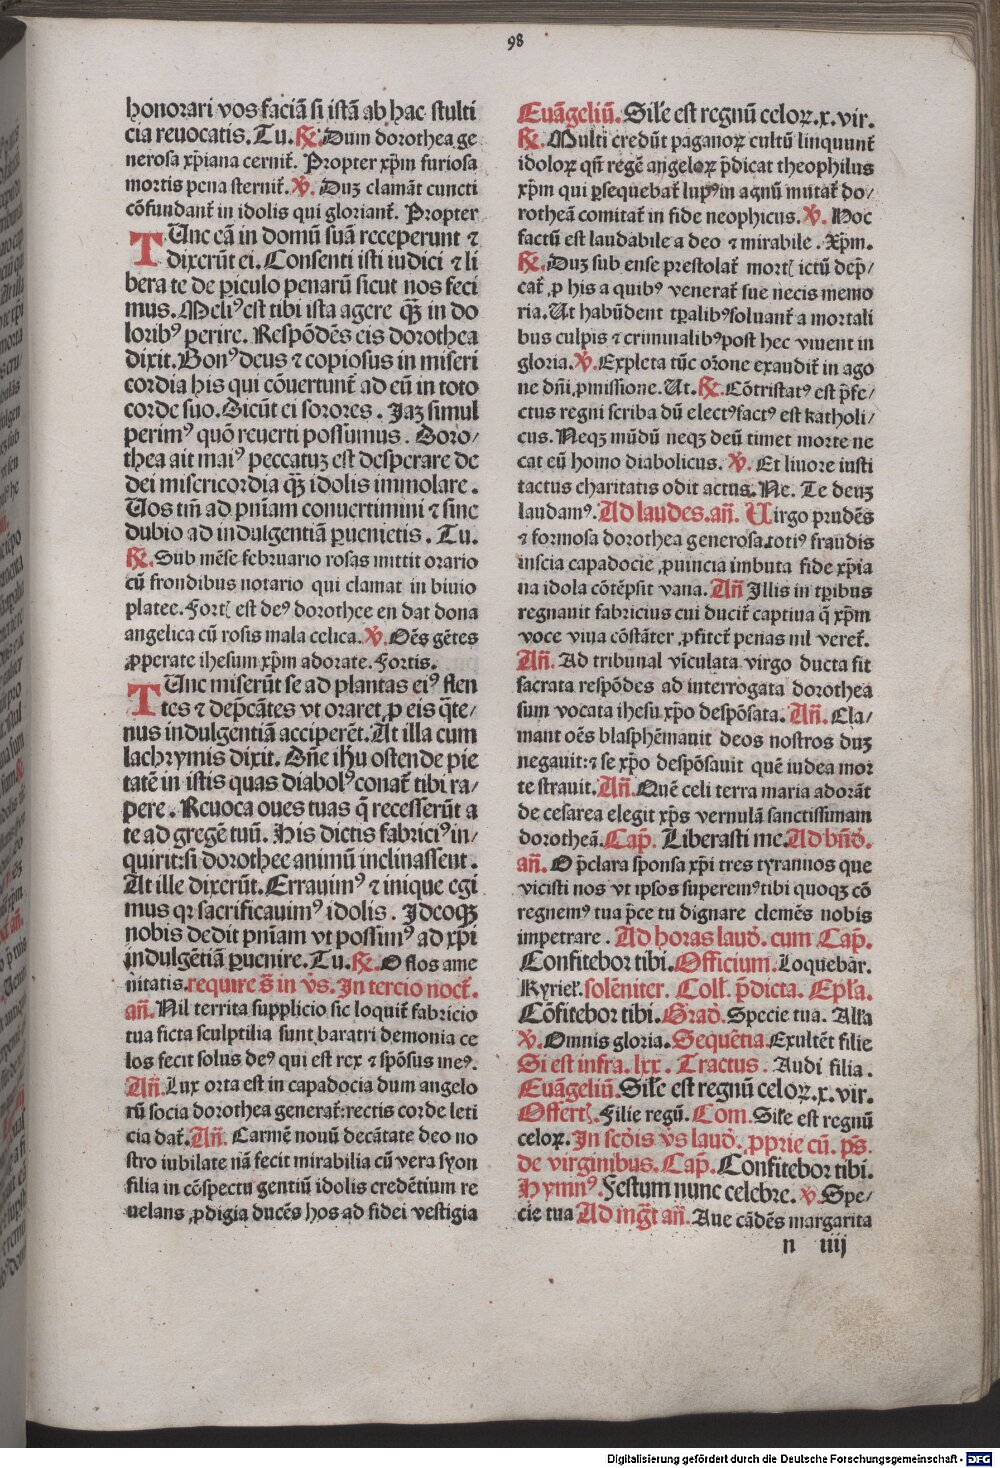 98
honorari vos faciā si istā ab hac stulti
cia reuocatis. Tu. ℟. Dum dorothea ge
nerosa xp̄iana cernit᷑. Propter xp̄m furiosa
mortis pena sternit᷑. ℣. Duꝫ clamāt cuncti
cōfundant᷑ in idolis qui gloriant᷑. Propter
TUnc eā in domū suā receperunt ⁊
dixerūt ei. Consenti isti iudici ⁊ li
bera te de ꝑiculo penarū sicut nos feci
mus. Meliꝰ est tibi ista agere qꝫ̄ in do
loribꝰ perire. Respōdēs eis dorothea
dixit. Bonꝰ deus ⁊ copiosus in miseri
cordia his qui cōuertunt᷑ ad eū in toto
corde suo. Dicūt ei sorores. Jaꝫ simul
perimꝰ quō reuerti possumus. Doro/
thea ait maiꝰ peccatuꝫ est desperare de
dei misericordia qꝫ̄ idolis immolare.
Uos tm̄ ad pn̄iam conuertimini ⁊ sine
dubio ad indulgentiā ꝑuenietis. Tu.
℟. Sub mēse februario rosas mittit orario
cū frondibus notario qui clamat in biuio
platee. Fortꝭ est deꝰ dorothee en dat dona
angelica cū rosis mala celica. ℣. Oēs gētes
ꝓperate ihesum xp̄m adorate. Fortis.
TUnc miserūt se ad plantas eiꝰ flen
tes ⁊ dep̄cātes vt oraret ꝓ eis q̄te-
nus indulgentiā acciperēt. At illa cum
lachrymis dixit. Dn̄e ihū ostende pie
tatē in istis quas diabolꝰ conat᷑ tibi ra/
pere. Reuoca oues tuas q̄ recesserūt a
te ad gregē tuū. His dictis fabriciꝰ in/
quirit: si dorothee animū inclinassent.
At ille dixerūt. Errauimꝰ ⁊ inique egi
mus qꝛ sacrificauimꝰ idolis. Jdeoqꝫ
nobis dedit pn̄iam vt possimꝰ ad xp̄i
indulgētiā ꝑuenire. Tu. ℟. O flos ame
nitatis. require s̄ in v̄s. Jn tercio noct᷑.
an̄. Nil territa supplicio sic loquit᷑ fabricio
tua ficta sculptilia sunt baratri demonia ce
los fecit solus deꝰ qui est rex ⁊ spōsus meꝰ.
An̄. Lux orta est in capadocia dum angelo
rū socia dorothea generat᷑: rectis corde leti
cia dat᷑. An̄. Carmē nouū decātate deo no
stro iubilate nā fecit mirabilia cū vera syon
filia in cōspectu gentiū idolis credētium re
uelans ꝓdigia ducēs hos ad fidei vestigia
Euāgeliū. Sil̄e est regnū celoꝝ. x. vir.
℟. Multi credūt paganoꝝ cultū linquunt᷑
idoloꝝ qn̄ regē angeloꝝ p̄dicat theophilus
xp̄m qui ꝑsequebat᷑ lupꝰ in agnū mutat᷑ do/
rotheā comitat᷑ in fide neophicus. ℣. Hoc
factū est laudabile a deo ⁊ mirabile. Xp̄m.
℟. Duꝫ sub ense prestolat᷑ mortꝭ ictū dep̄/
cat᷑ ꝓ his a quibꝰ venerat᷑ sue necis memo
ria. Ut habūdent tp̄alibꝰ soluant᷑ a mortali
bus culpis ⁊ criminalibꝰ post hec viuent in
gloria. ℣. Expleta tūc or̄one exaudit᷑ in ago
ne dn̄i ꝓmissione. Ut. ℟. Cōtristatꝰ est p̄fe/
ctus regni scriba dū electꝰ factꝰ est katholi/
cus. Neqꝫ mūdū neqꝫ deū timet morte ne
cat eū homo diabolicus. ℣. Et liuore iusti
tactus charitatis odit actus. Ne. Te deuꝫ
laudamꝰ. Ad laudes. an̄. Uirgo prudēs
⁊ formosa dorothea generosa totiꝰ fraudis
inscia capadocie ꝓuincia imbuta fide xp̄ia
na idola cōtēpsit vana. An̄ Jllis in tp̄ibus
regnauit fabricius cui ducit᷑ captiua q̄ xp̄m
voce viua cōstāter ꝓfitet᷑ penas nil veret᷑.
An̄. Ad tribunal vīculata virgo ducta sit
sacrata respōdes ad interrogata dorothea
sum vocata ihesu xp̄o despōsata. An̄. Cla/
mant oēs blasphēmauit deos nostros duꝫ
negauit: ⁊ se xp̄o despōsauit quē iudea mor
te strauit. An̄. Quē celi terra maria adorāt
de cesarea elegit xp̄s vernulā sanctissimam
dorotheā. Cap̄. Liberasti me. Ad bn̄d̄.
an̄. O p̄clara sponsa xp̄i tres tyrannos que
vicisti nos vt ipsos superemꝰ tibi quoqꝫ cō
regnemꝰ tua p̄ce tu dignare clemēs nobis
impetrare. Ad horas laud̄. cum Cap̄.
Confitebor tibi. Officium. Loquebar.
Kyriel᷑. solēniter. Coll᷑. p̄dicta. Epl̄a.
Cōfitebor tibi. Grad̄. Specie tua. All̄a
℣. Omnis gloria. Sequētia. Exultēt filie
Si est infra. lxx. Tractus. Audi filia.
Euāgeliū. Sil̄e est regnū celoꝝ. x. vir.
Offertꝭ. Filie regū. Com. Sil̄e est regnū
celoꝝ. Jn scd̄is v̄s laud̄. ꝓprie cū. ps̄.
de virginibus. Cap̄. Confitebor tibi.
Hymnꝰ. Festum nunc celebre. ℣. Spe/
cie tua Ad mḡt an̄. Aue cādēs margarita
n iiij
Digitalisierung gefördert durch die Deutsche Forschungsgemeinschaft - DFG